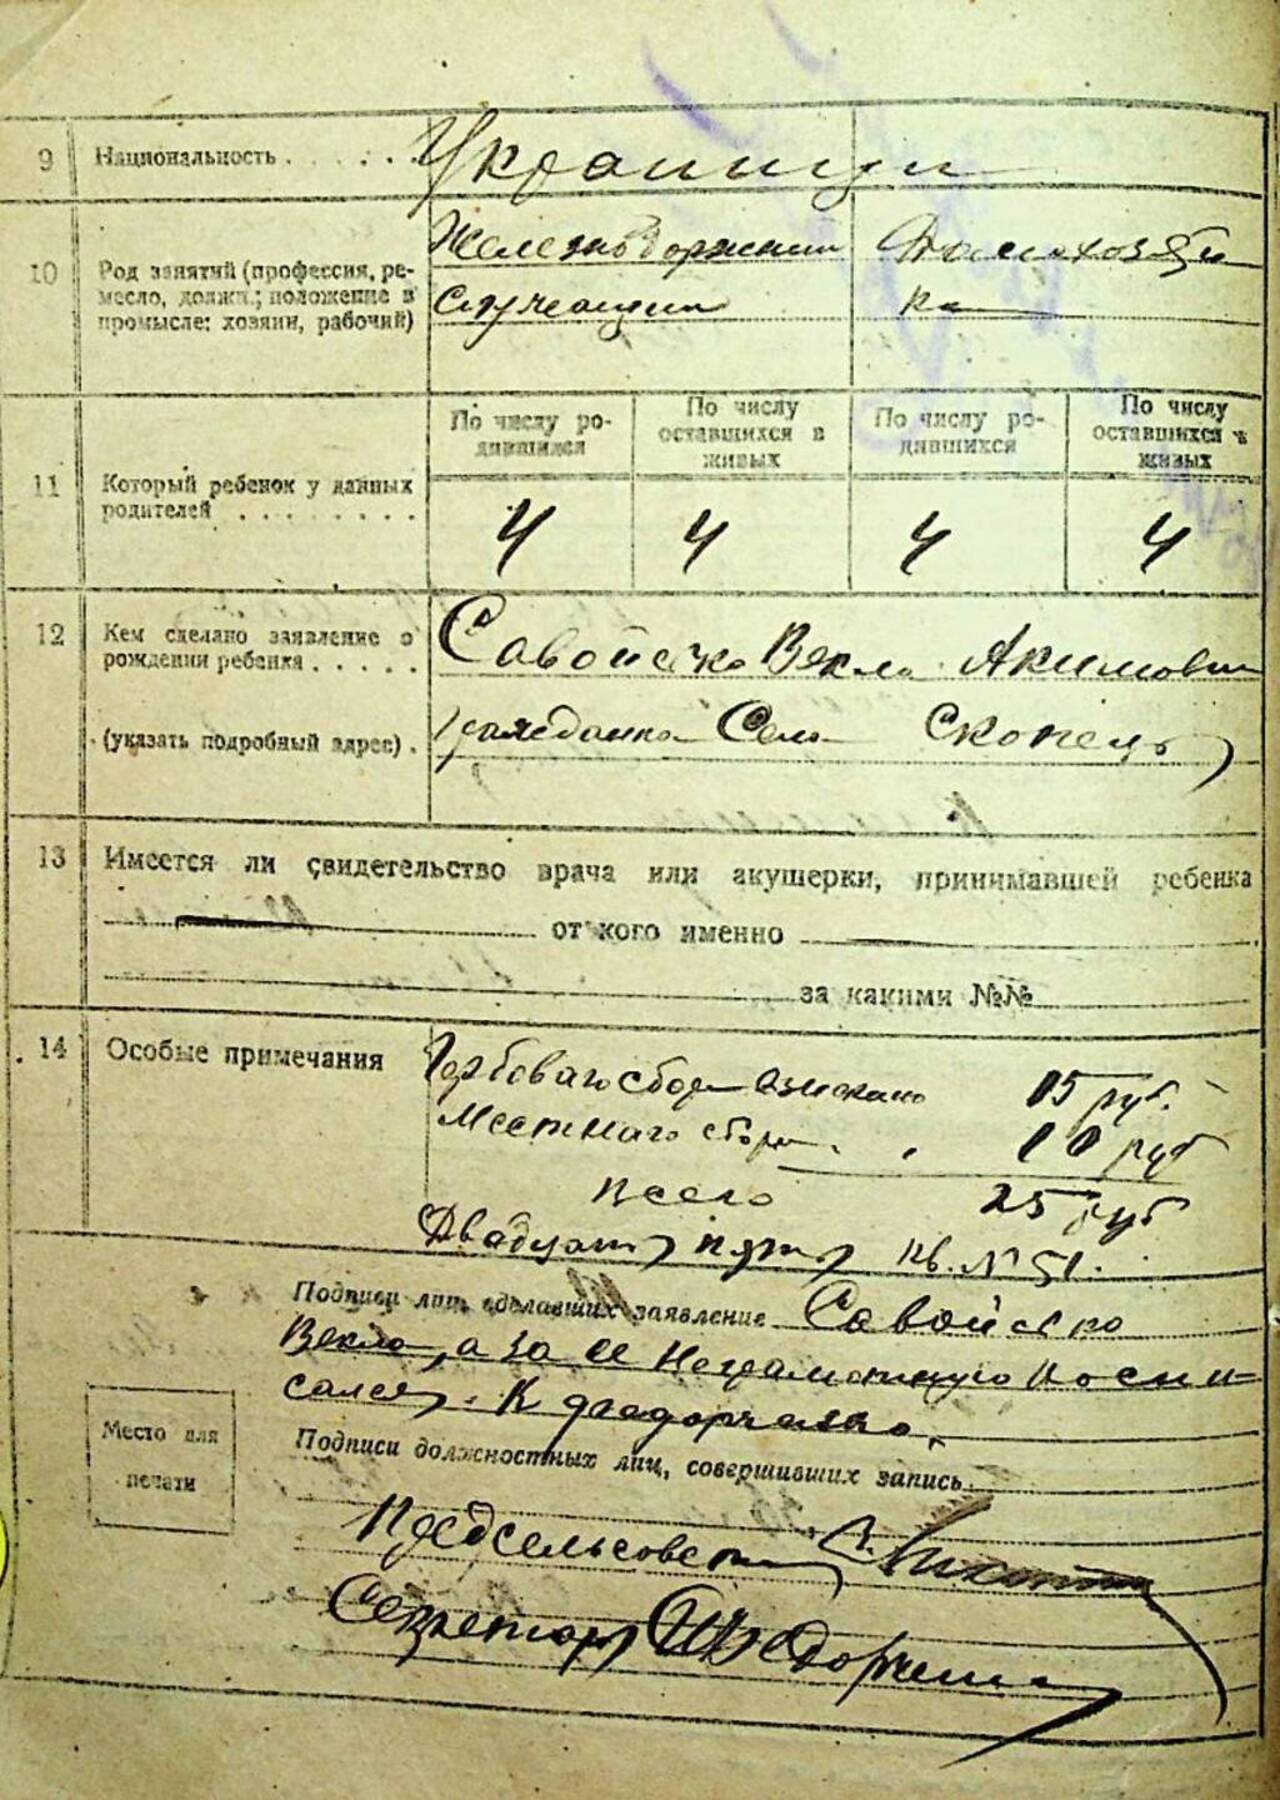 9 Национальность . . . . . . Украинци
10 Род занятий (профессия, ре-
месло, должн.; положение в
промысле: хозяин, рабочий)
Железнодорожний
Служащий
Домохозяй
ка
По числу ро-
дившихся
По числу
оставшихся в
живых
По числу ро-
дившихся
По числу
оставшихся в
живых
11 Который ребенок у данных
родителей . . . . . . . .
4 4 4 4
12 Кем сделано заявление о
рождении ребенка . . . . .
(указать подробный адрес) .
Савойско Векла Акимовна
гражданка Села Скопець
13 Имеется ли свидетельство врача или акушерки, принимавшей ребенка
от кого именно
за какими №№
14 Особые примечания
Гербоваго сбора взискано 15 руб.
Местнаго сбора " 10 руб
Всего 25 руб
Двадцать пять кв. № 51.
Подписи лиц, сделавших заявление Савойско
Векла, а за ее Неграмотную Роспи-
сался
Подписи должностных лиц, совершивших запись
Место для
печати
Предсельсовета
Секретарь